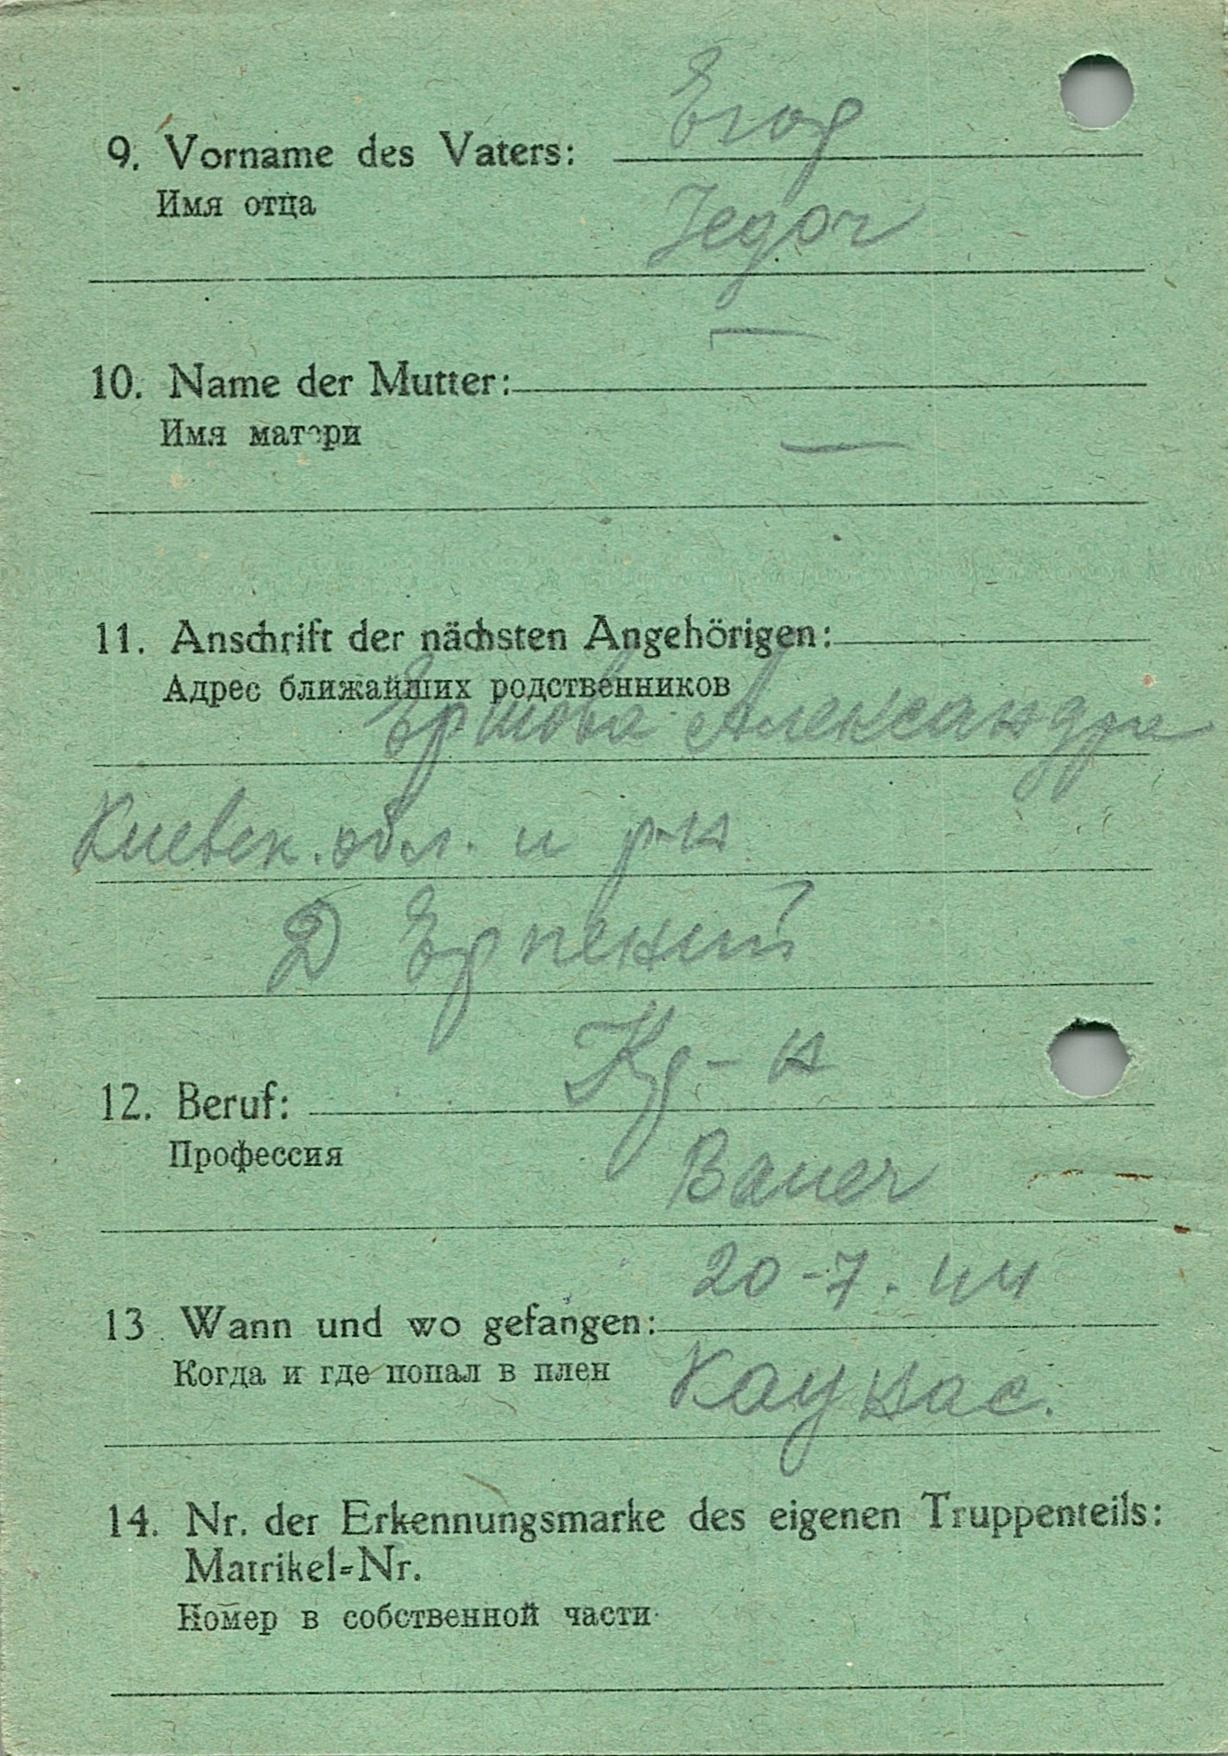 9. Vorname des Vaters: Егор
Имя отца Jegor
10. Name der Mutter: —
Имя матери —
11. Anschrift der nächsten Angehörigen:
Адрес ближайших родственников
Ершова Александра
Киевск. обл. и р-н
Д Ерпений
12. Beruf: Кр-н
Профессия Bauer
13. Wann und wo gefangen: 20-7.44
Когда и где попал в плен Каунас.
14. Nr. der Erkennungsmarke des eigenen Truppenteils:
Matrikel-Nr.
Номер в собственной части